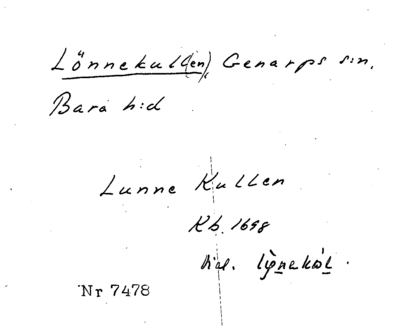 Lönnekull(en), Genarps s:n,
Bara h:d
Lunne Kullen
Kb. 1698
Dial.
Nr 7478